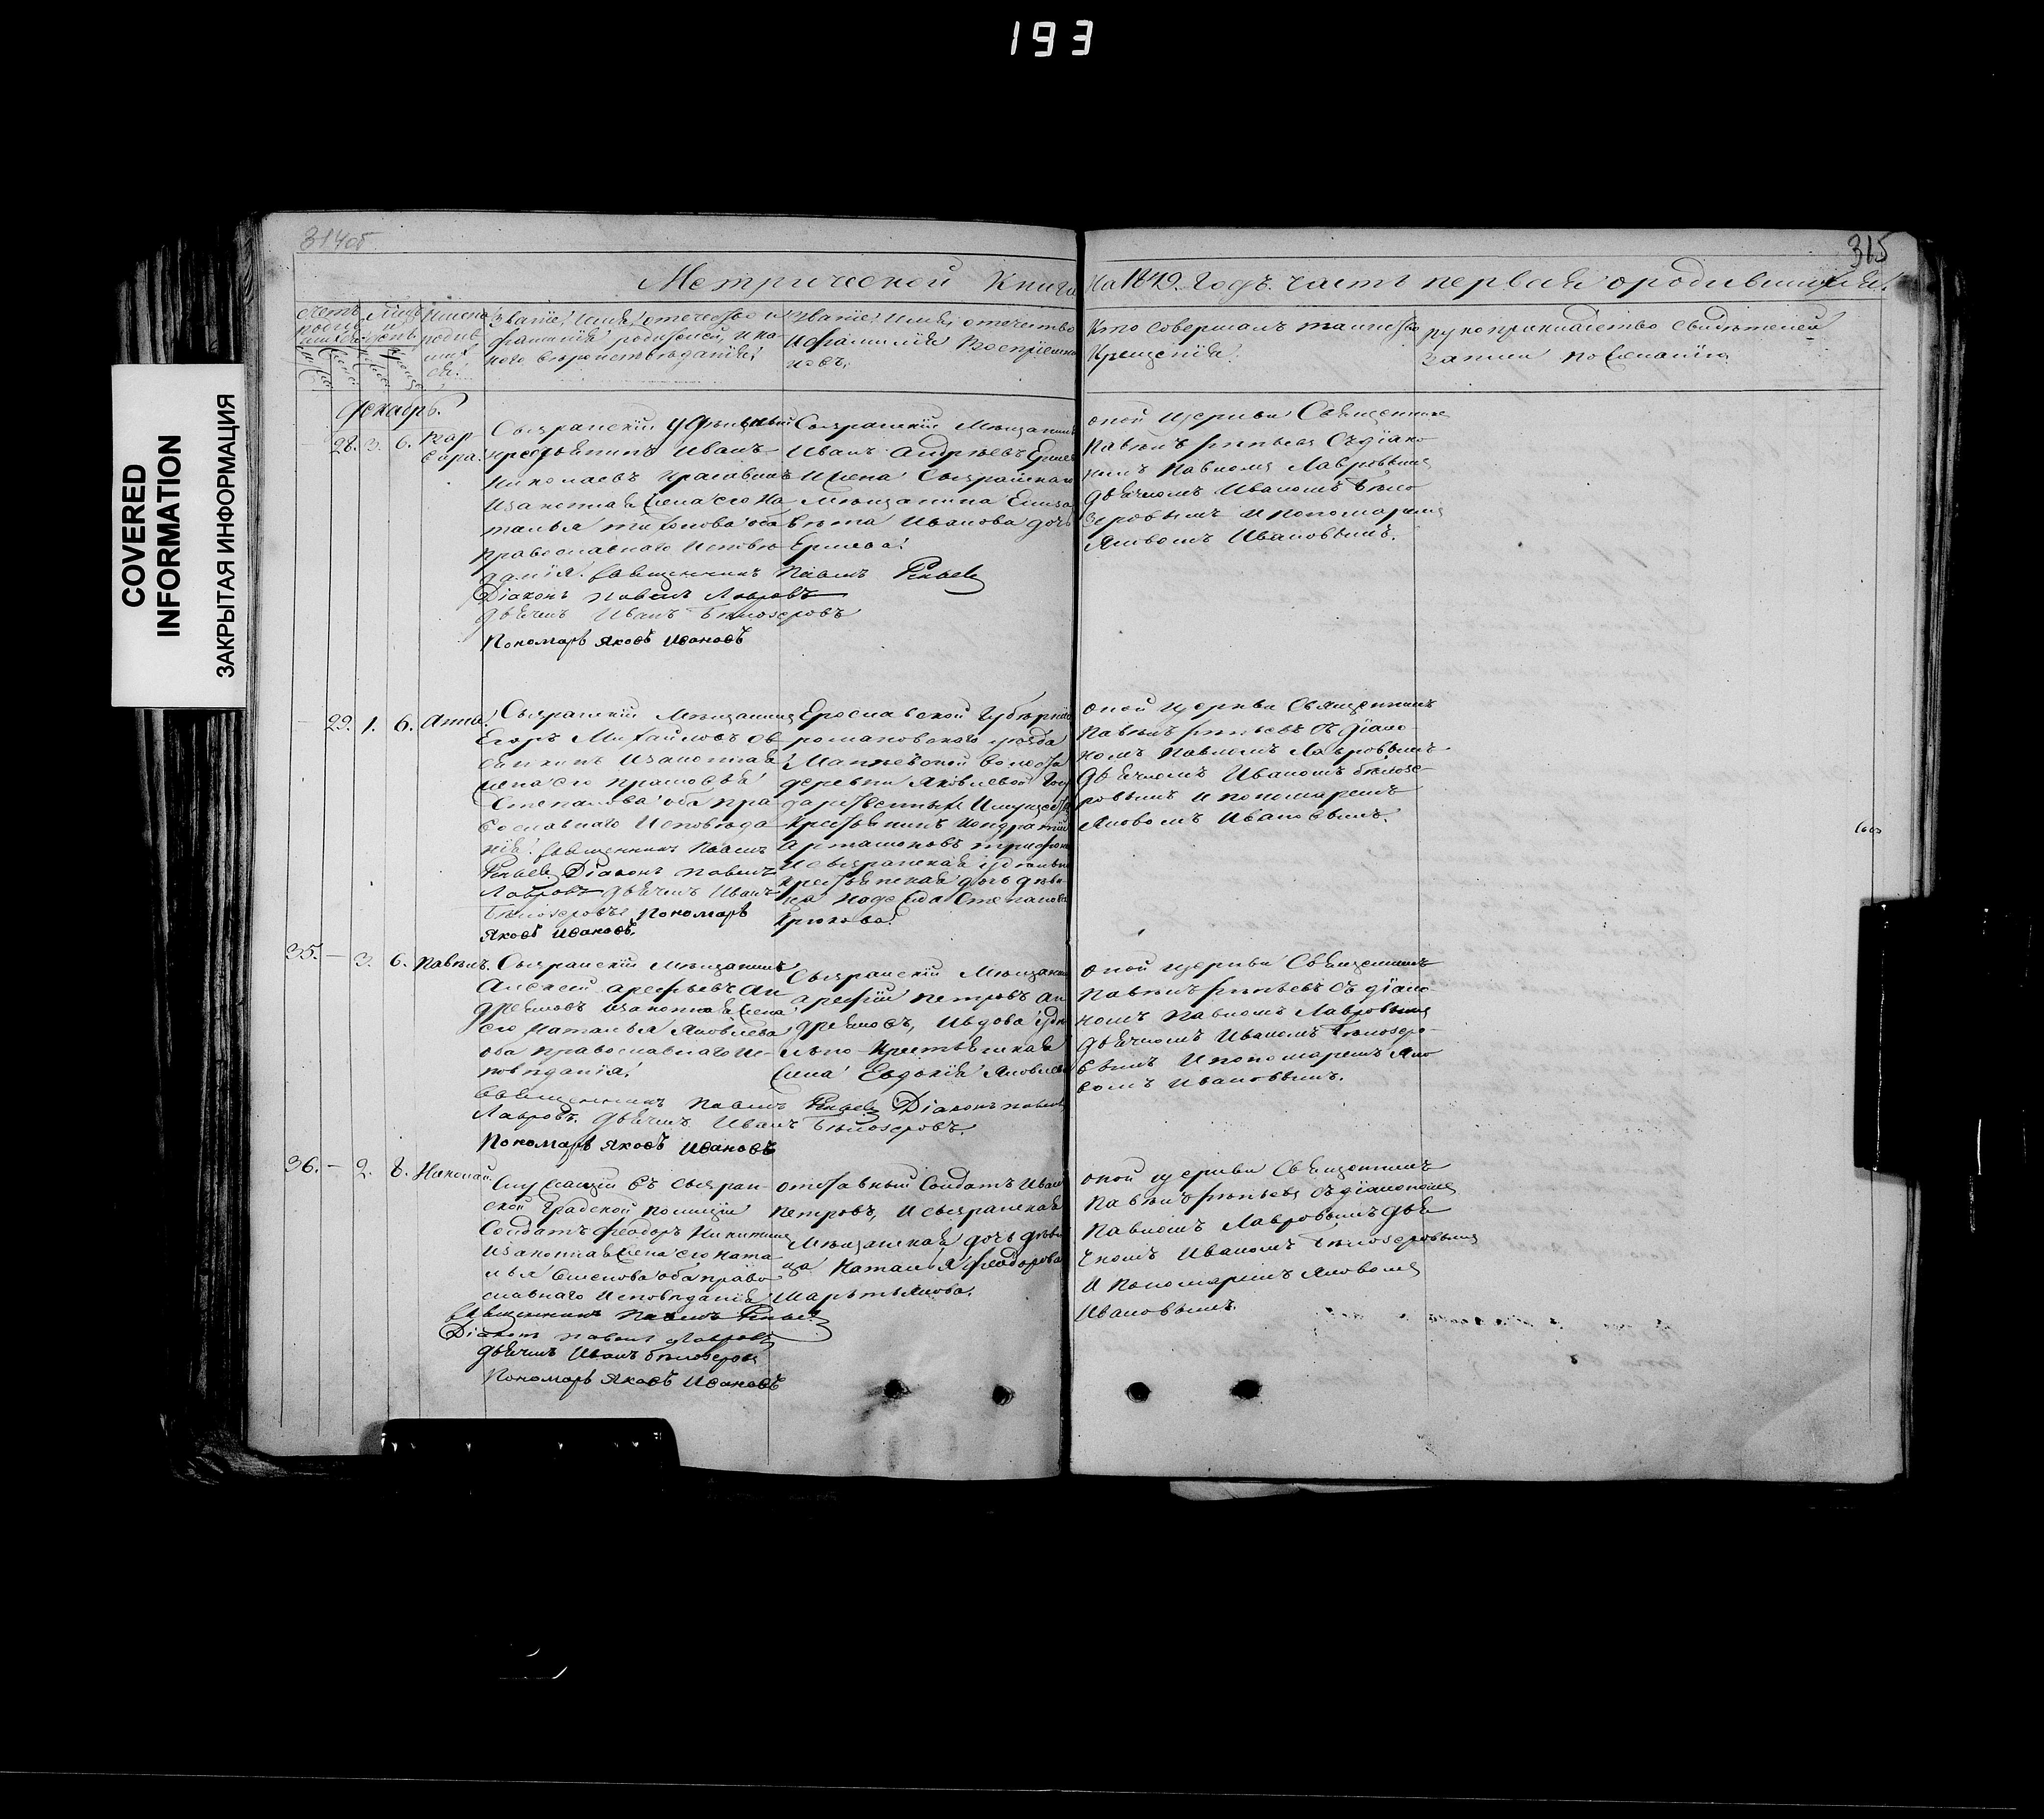 193
COVERED
INFORMATION
ЗАКРЫТАЯ ИНФОРМАЦИЯ
314об
315
Метрической Книги На 1849. Годъ. часть первая о родившихся.
Званіе, имя, отечество и
фамилія родителей, и ка-
кого вѣроисповѣданія.
Званіе, имя, отечество
и фамилія Воспріемни
ковъ.
Кто совершалъ таинство
Крещенія.
рукоприкладство свидѣтелей
записи по желанію
декабрь.
28. 3. 6. Вар-
вара.
Сызранскій удѣльный
крестьянинъ Иванъ
Николаевъ
и законная жена его На
талья Тихонова оба
православнаго исповѣ
данія. Священникъ Павелъ
Діаконъ Павелъ Лавровъ
Дьячикъ Иванъ Бѣлозеровъ
Пономарь Яковъ Ивановъ
Сызранскій Мѣщанинъ
Иванъ Андрѣевъ
и жена Сызранскаго
Мѣщанина Елиза
вѣта Иванова дочь
оной церкви Священникъ
Павелъ съ діако
номъ Павломъ Лавровымъ
дьячкомъ Иваномъ Бѣло
зеровымъ и пономаремъ
Яковомъ Ивановымъ.
29. 1. 6. Анна.
Сызранскій Мѣщанинъ
Егоръ Михайловъ Ов
сянкинъ и законная
жена его Прасовья
Степанова оба пра
вославнаго исповѣда
нія. Священникъ Павелъ
Діаконъ Павелъ
Лавровъ Дьячикъ Иванъ
Бѣлозеровъ Пономарь
Яковъ Ивановъ.
Ерославской Губерніи
романовскаго уезда
волости
деревни Яковлевой Госу
дарственныхъ Имуществъ
Крестьянинъ Кондратій
Артамоновъ
и сызранская удѣльно
крестьянская дочь дѣви
ца Надежда Степанова
Крюкова.
оной церкви священникъ
Павелъ съ діако
номъ Павломъ Лавровымъ
дьячкомъ Иваномъ бѣлозе-
ровымъ и пономаремъ
Яковомъ Ивановымъ.
35. — 3. 6. Павелъ.
Сызранскій Мѣщанинъ
Алексей Арефьевъ Ан
дреяновъ и законная жена
его Наталья Яковлева
оба православнаго ис-
повѣданія.
Священникъ Павелъ Діаконъ Павелъ
Лавровъ. Дьячикъ Иванъ Бѣлозеровъ.
Пономарь Яковъ Ивановъ
Сызранскій Мѣщанинъ
Арефій Петровъ Ан
дреяновъ, и вдова удѣ
льно-крестьянская
жена Евдокія Яковлева
оной церкви Священникъ
Павелъ съ діако-
номъ Павломъ Лавровымъ
дьячкомъ Иваномъ Бѣлозеро-
вымъ и пономаремъ Яко
вомъ Ивановымъ.
36. — 2. 8. Николай
Служащій въ сызран-
ской Градской полиціи
Солдатъ Феодоръ Никитинъ
и законная жена его Ната
лья Семенова оба право
славнаго исповѣданія
Священникъ Павелъ
Діаконъ Павелъ Лавровъ
Дьячикъ Иванъ бѣлозеровъ
Пономарь Яковъ Ивановъ
отставный Солдатъ Иванъ
Петровъ, и сызранская
Мѣщанская дочь дѣви
ца Наталья Феодорова
Мартьянова.
оной церкви Священникъ
Павелъ съ діакономъ
Павломъ Лавровымъ дья
чкомъ Иваномъ Бѣлозеровымъ
и пономаремъ Яковомъ
Ивановымъ.